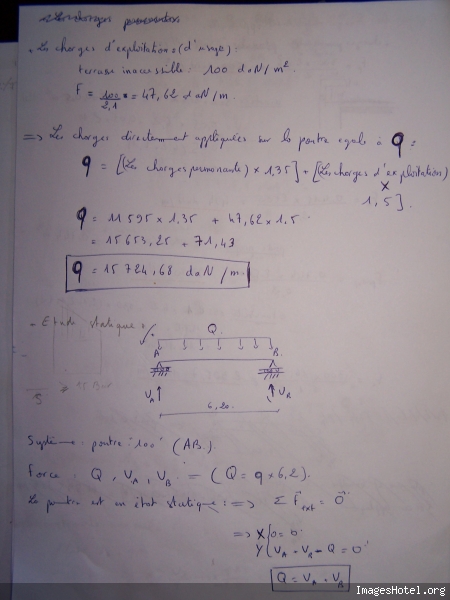 • Les charges d'exploitations (d'usage) :
terrasse inaccessible : 100 daN/m².
F = 100/2,1 = 47,62 daN/m.
=> Les charges directement appliquées sur la poutre egale à q =
q = [(Les charges permanente) × 1,35] + [(Les charges d'exploitation)
×
1,5].
q = 11595 × 1,35 + 47,62 × 1,5
= 15653,25 + 71,43
q = 15724,68 daN/m
- Etude statique :
Q
A B
V_A V_B
6,20
Système : poutre "100" (AB).
Force : Q, V_A, V_B (Q = q × 6,2).
La poutre est en état statique : => Σ F_ext = 0
=> X { 0 = 0
Y { V_A - V_B - Q = 0
Q = V_A - V_B
ImagesHotel.org